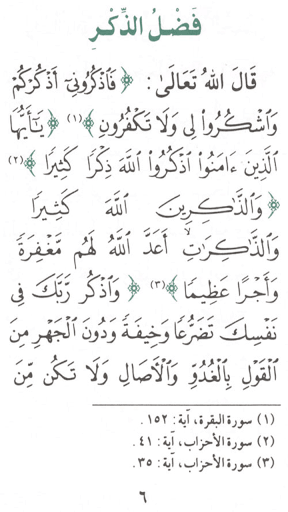 فَضْلُ الذِّكْرِ
قَالَ اللهُ تَعَالَىٰ: ﴿فَاذْكُرُونِىٓ أَذْكُرْكُمْ
وَاشْكُرُوا لِى وَلَا تَكْفُرُونِ﴾(١) ﴿يَـٰٓأَيُّهَا
الَّذِينَ ءَامَنُوا۟ اذْكُرُوا۟ اللَّهَ ذِكْرًا كَثِيرًا﴾(٢)
﴿وَالذَّاكِرِينَ اللَّهَ كَثِيرًا
وَالذَّاكِرَاتِ أَعَدَّ اللَّهُ لَهُم مَّغْفِرَةً
وَأَجْرًا عَظِيمًا﴾(٣) ﴿وَاذْكُر رَّبَّكَ فِى
نَفْسِكَ تَضَرُّعًا وَخِيفَةً وَدُونَ الْجَهْرِ مِنَ
الْقَوْلِ بِالْغُدُوِّ وَالْآصَالِ وَلَا تَكُن مِّنَ
(١) سورة البقرة، آية: ١٥٢.
(٢) سورة الأحزاب، آية: ٤١.
(٣) سورة الأحزاب، آية: ٣٥.
٦